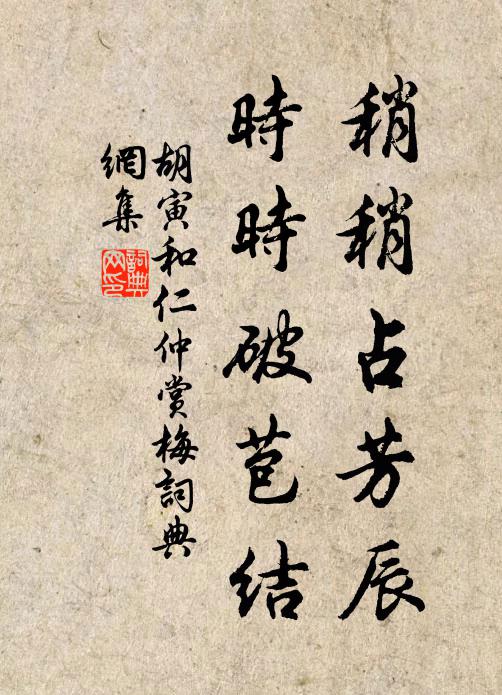 稍稍占芳辰
時時破苞結
胡寅和仁仲賞梅詞典
網集
詞典網印